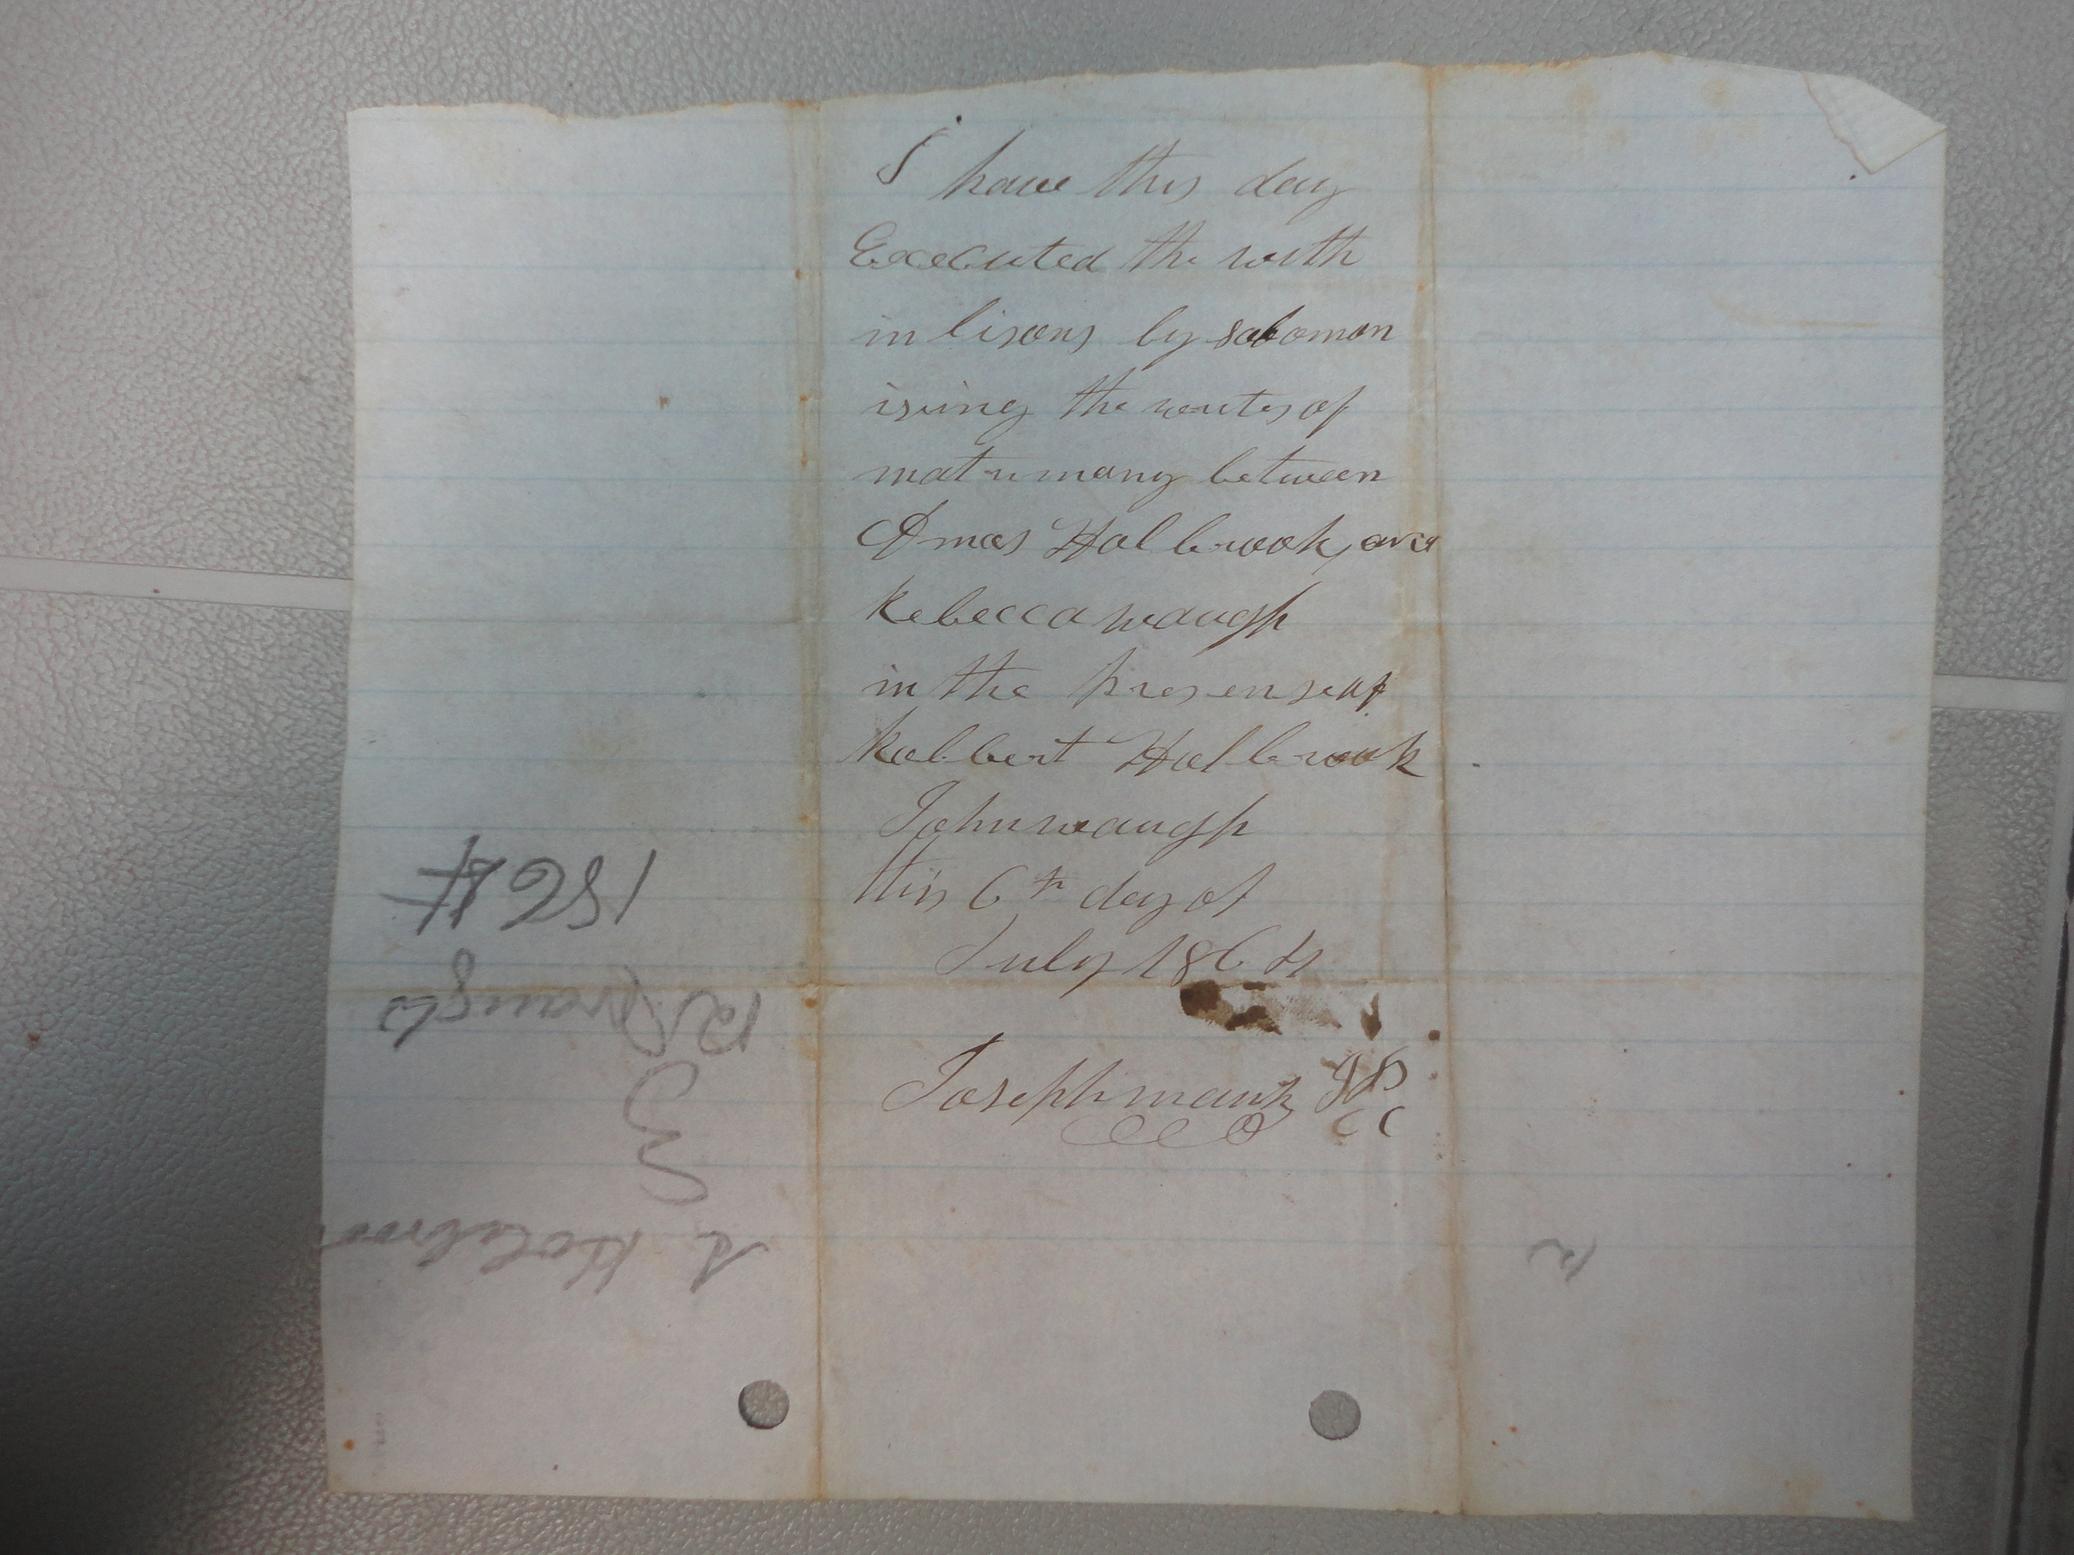 I have this day
Executed the with
in lisons by solomon
ising the writes of
matrimony between
Amos Holbrook, and
Rebecca waugh
in the presense of
Robbert Holbrook
John waugh
this 6th day of
July 1864
Joseph mauk JP
CC
1864
R Waugh
A Holbroo